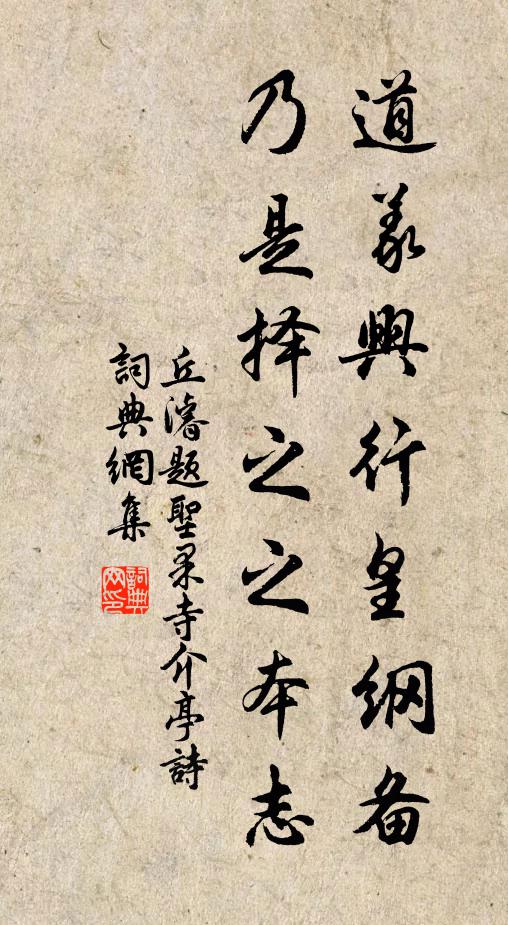 道義興行皇纲备
乃是择之之本志
丘濬题聖果寺介亭詩
詞典網集
詞典
网印